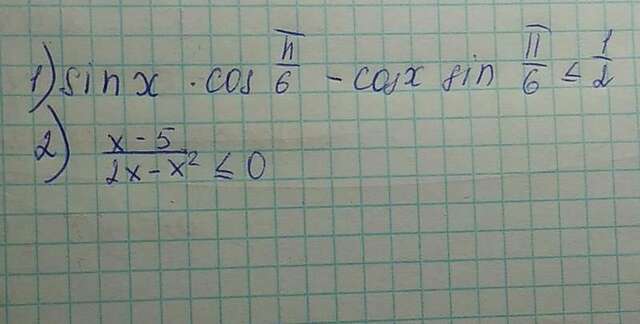 1) sin x · cos π/6 - cos x sin π/6 ≤ 1/2
2) (x - 5)/(2x - x²) ≤ 0